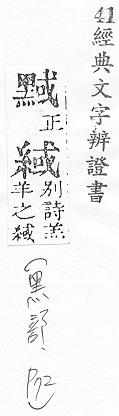 41經典文字辨證書
䵧正緎別詩羔
羊之緎
(黑部、P72)